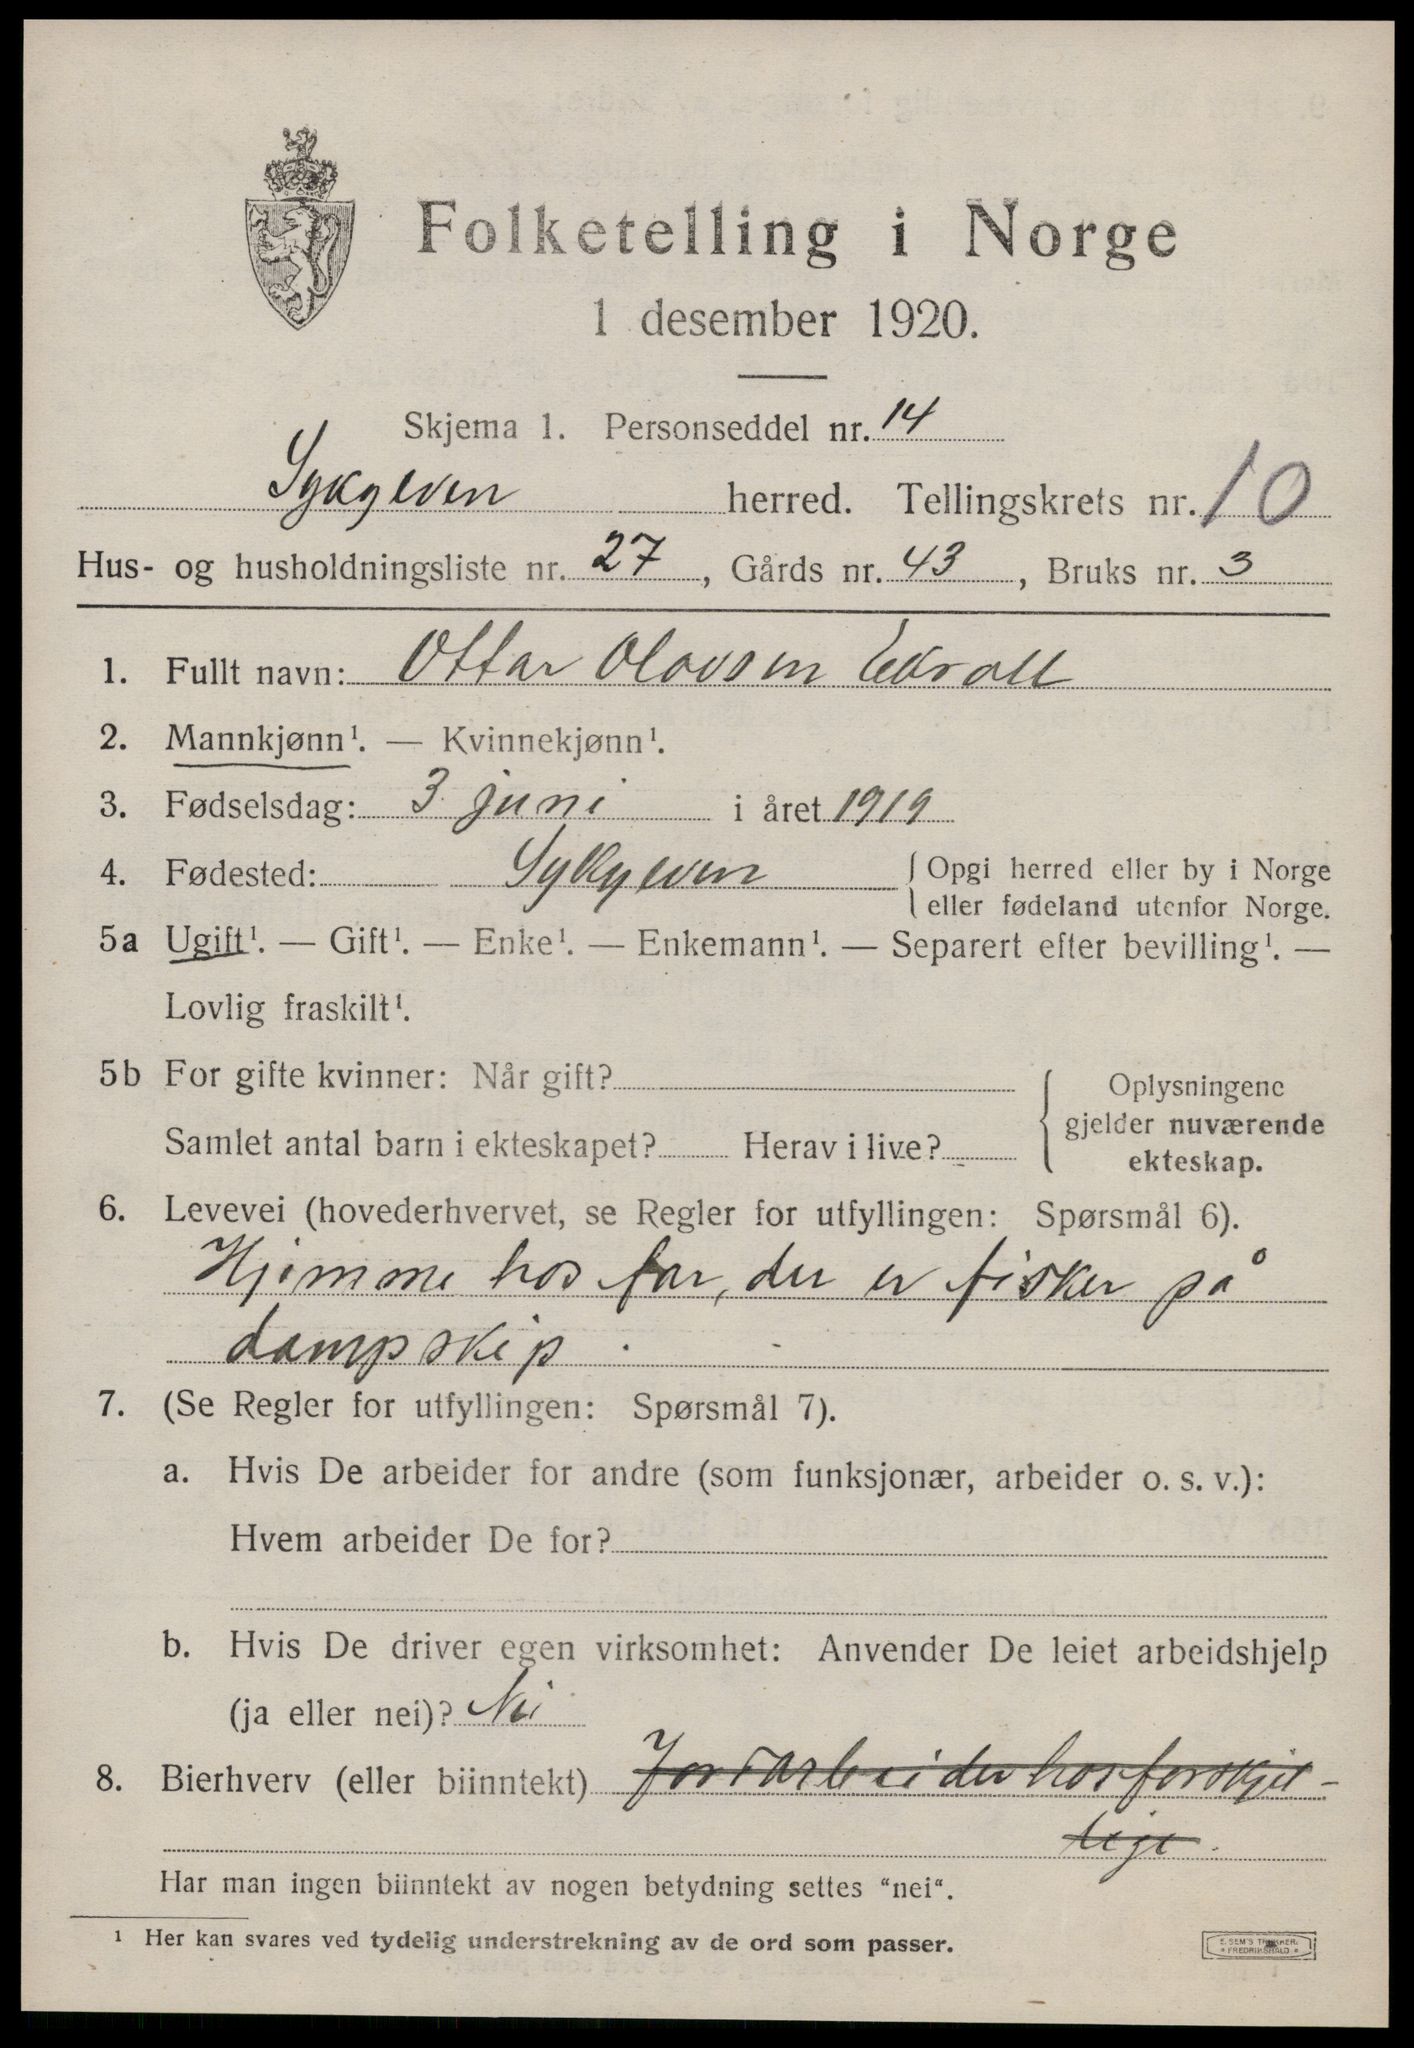 Folketelling i Norge
1 desember 1920.
Skjema 1. Personseddel nr. 14
Sykylven herred. Tellingskrets nr. 10
Hus- og husholdningsliste nr. 27, Gårds nr. 43, Bruks nr. 3
1. Fullt navn: Ottar Olavsen Ekroll
2. Mannkjønn¹. — Kvinnekjønn¹.
3. Fødselsdag: 3 juni i året 1919
4. Fødested: Sykylven { Opgi herred eller by i Norge
eller fødeland utenfor Norge.
5a Ugift¹. — Gift¹. — Enke¹. — Enkemann¹. — Separert efter bevilling¹. —
Lovlig fraskilt¹.
5b For gifte kvinner: Når gift?
Samlet antal barn i ekteskapet? Herav i live?
Oplysningene
gjelder nuværende
ekteskap.
6. Levevei (hovederhvervet, se Regler for utfyllingen: Spørsmål 6).
Hjemme hos far, der er fisker på
dampskip.
7. (Se Regler for utfyllingen: Spørsmål 7).
a. Hvis De arbeider for andre (som funksjonær, arbeider o. s. v.):
Hvem arbeider De for?
b. Hvis De driver egen virksomhet: Anvender De leiet arbeidshjelp
(ja eller nei)? Nei
8. Bierhverv (eller biinntekt) Jordarbeider hos forskjel-
lige.
Har man ingen biinntekt av nogen betydning settes "nei".
¹ Her kan svares ved tydelig understrekning av de ord som passer.
E. SEM'S TRYKKERI
FREDRIKSHALD